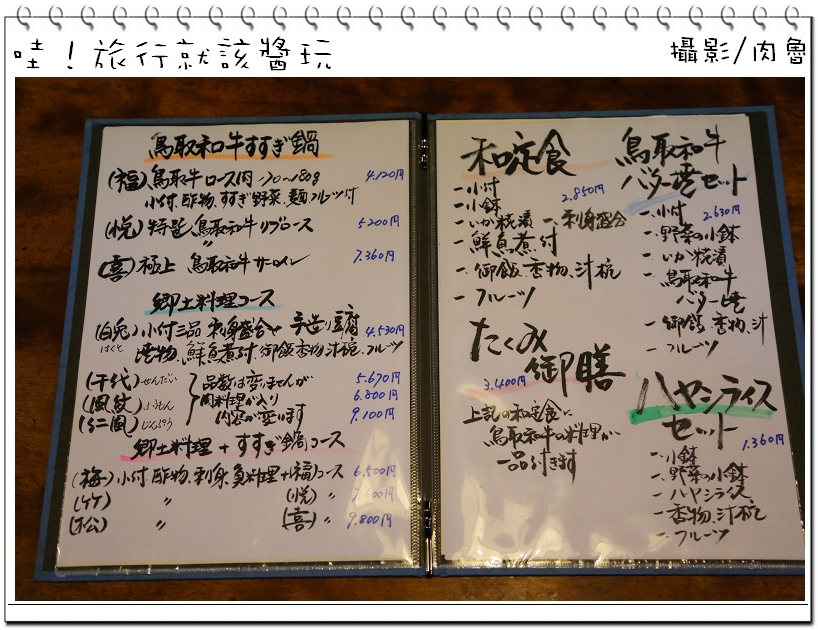 哇！旅行就該醬玩
攝影/肉魯
鳥取和牛すすぎ鍋
(福) 鳥取牛ロース肉 170〜180g 4.120円
小付、酢物、すすぎ野菜、麺フルーツ付
(悦) 特選 鳥取和牛リブロース 5.200円
(喜) 極上 鳥取和牛サーロイン 7.360円
郷土料理コース
(白兎) 小付三品 刺身盛合せ 手造り豆腐 4.530円
はくと 焼物、鮮魚煮付、御飯香物汁椀、フルーツ
(千代) せんだい 品数は変りませんが 5.670円
(風紋) ふうもん 肉料理が入り 6.800円
(仁風) じんぷう 内容が変ります 9.100円
郷土料理+すすぎ鍋コース
(梅) 小付、酢物、刺身、魚料理+(福)コース 6.500円
(竹) 〃 (悦) 〃
(松) 〃 (喜) 〃 9.800円
和定食
2.850円
一、小付
一、小鉢
一、いか糀漬 一、刺身盛合
一、鮮魚煮付
一、御飯、香物、汁椀
一、フルーツ
たくみ御膳
3.400円
上記の和定食に
鳥取和牛の料理が
一品付きます
鳥取和牛
バター焼セット
2.630円
一、小付
一、野菜の小鉢
一、いか糀漬
一、鳥取和牛
バター焼
一、御飯、香物、汁
一、フルーツ
ハヤシライス
セット
1.360円
一、小鉢
一、野菜の小鉢
一、ハヤシライス
一、香物、汁椀
一、フルーツ